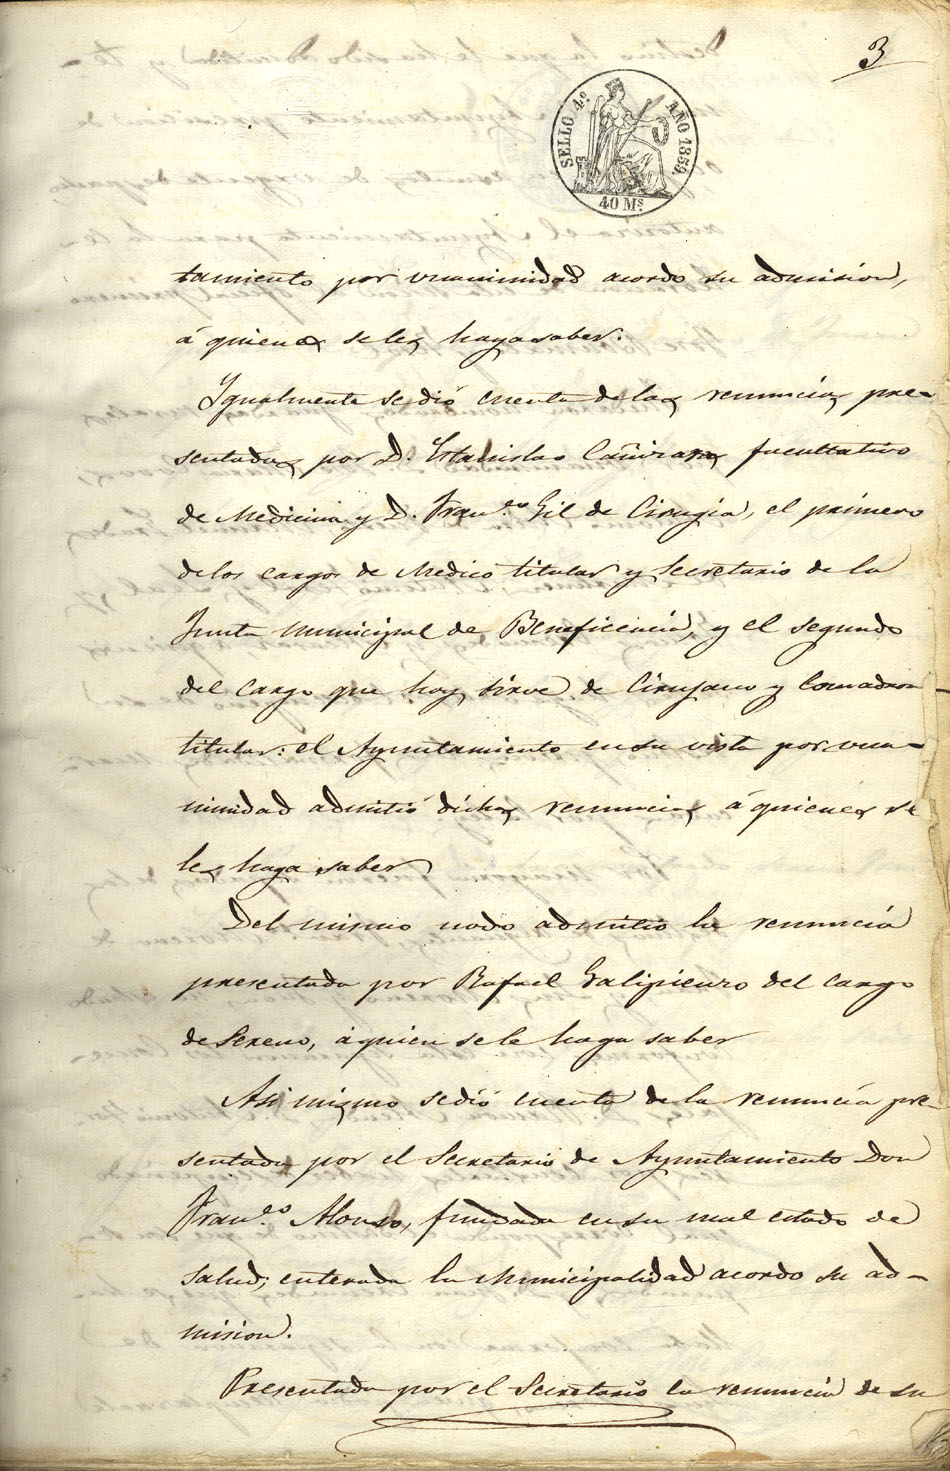 3
SELLO 4.º AÑO 1859.
40 Ms.
tamiento por unanimidad acordo su admision,
á quienes se les haga saber.
Igualmente se dió cuenta de las renuncias pre-
sentadas por D. Estanislao facultativo
de Medicina y D. Franco. Gil de Cirugia, el primero
de los cargos de Medico titular y Secretario de la
Junta municipal de Beneficencia, y el segundo
del cargo que hoy sirve de Cirujano y Comadron
titular: el Ayuntamiento en su vista por una-
nimidad admitió dichas renuncias á quienes se
les haga saber
Del mismo modo admitio la renuncia
presentada por Rafael Galipienzo del cargo
de Sereno, á quien se le haga saber
Asi mismo se dió cuenta de la renuncia pre-
sentada por el Secretario de Ayuntamiento Don
Franco. Alonso, fundada en su mal estado de
salud; enterada la Municipalidad acordo su ad-
mision.
Presentada por el Secretario la renuncia de su